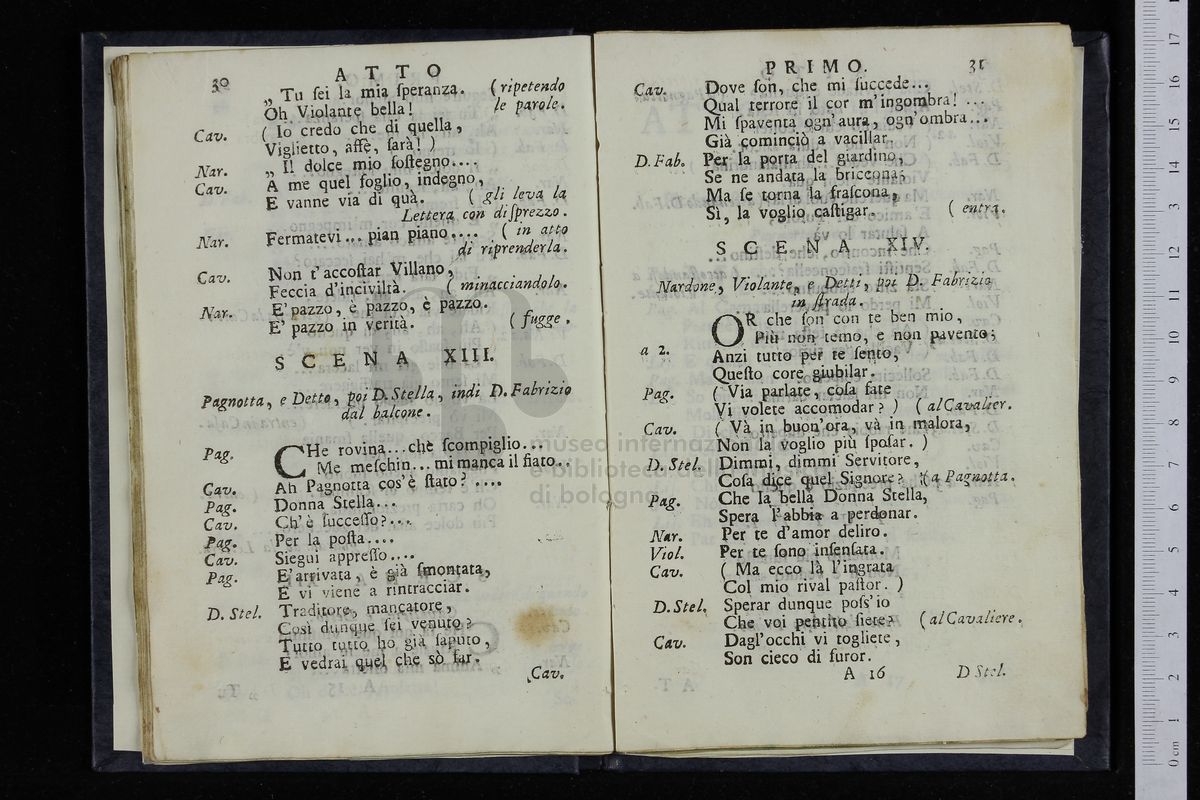 30 ATTO
„ Tu ſei la mia ſperanza. (ripetendo
Oh Violante bella! le parole.
Cav. ( Io credo che di quella,
Viglietto, affè, ſarà! )
Nar. „ Il dolce mio ſoſtegno....
Cav. A me quel foglio, indegno,
E vanne via di quà. ( gli leva la
Lettera con diſprezzo.
Nar. Fermatevi... pian piano.... ( in atto
di riprenderla.
Cav. Non t'accoſtar Villano,
Feccia d'inciviltà. ( minacciandolo.
Nar. E' pazzo, è pazzo, è pazzo.
E' pazzo in verità. ( fugge.
SCENA XIII.
Pagnotta, e Detto, poi D. Stella, indi D. Fabrizio
dal balcone.
Pag. CHe rovina...chè ſcompiglio...
Me meſchin... mi manca il fiato...
Cav. Ah Pagnotta cos'è ſtato?....
Pag. Donna Stella...
Cav. Ch'è ſucceſſo?...
Pag. Per la poſta....
Cav. Siegui appreſſo....
Pag. E'arrivata, è già ſmontata,
E vi viene a rintracciar.
D. Stel. Traditore, mancatore,
Così dunque ſei venuto?
Tutto tutto ho già ſaputo,
E vedrai quel che sò far.
Cav.
PRIMO. 31
Cav. Dove ſon, che mi ſuccede...
Qual terrore il cor m'ingombra! ...
Mi ſpaventa ogn'aura, ogn'ombra...
Già cominciò a vacillar.
D. Fab. Per la porta del giardino,
Se ne andata la briccona;
Ma ſe torna la fraſcona,
Sì, la voglio caſtigar. ( entra.
SCENA XIV.
Nardone, Violante, e Detti, poi D. Fabrizio
in ſtrada.
OR che ſon con te ben mio,
Più non temo, e non pavento;
a 2. Anzi tutto per te ſento,
Queſto core giubilar.
Pag. ( Via parlate, coſa fate
Vi volete accomodar? ) ( al Cavalier.
Cav. ( Và in buon'ora, và in malora,
Non la voglio più ſpoſar. )
D. Stel. Dimmi, dimmi Servitore,
Coſa dice quel Signore? ( a Pagnotta.
Pag. Che la bella Donna Stella,
Spera l'abbia a perdonar.
Nar. Per te d'amor deliro.
Viol. Per te ſono inſenſata.
Cav. ( Ma ecco là l'ingrata
Col mio rival paſtor. )
D. Stel. Sperar dunque poſs'io
Che voi pentito ſiete? ( al Cavaliere.
Cav. Dagl'occhi vi togliete,
Son cieco di furor.
A 16 D Stel.
museo internaz
e biblioteca della
di bologna